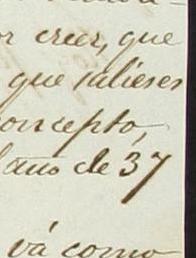 or creer, que
que salieses
concepto,
l año de 37
vá como